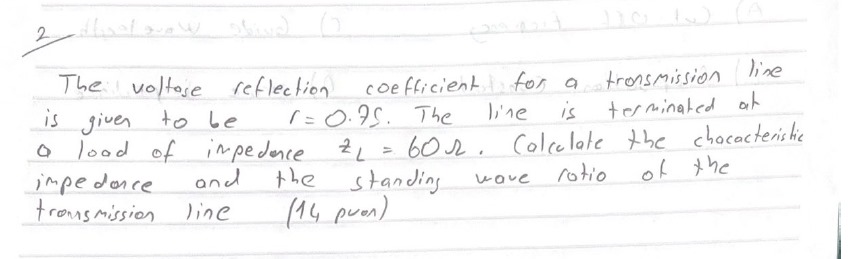 2
The voltage reflection coefficient for a transmission line
is given to be r = 0.75. The line is terminated at
a load of impedance ZL = 60 Ω. Calculate the characteristic
impedance and the standing wave ratio of the
transmission line (14 puan)